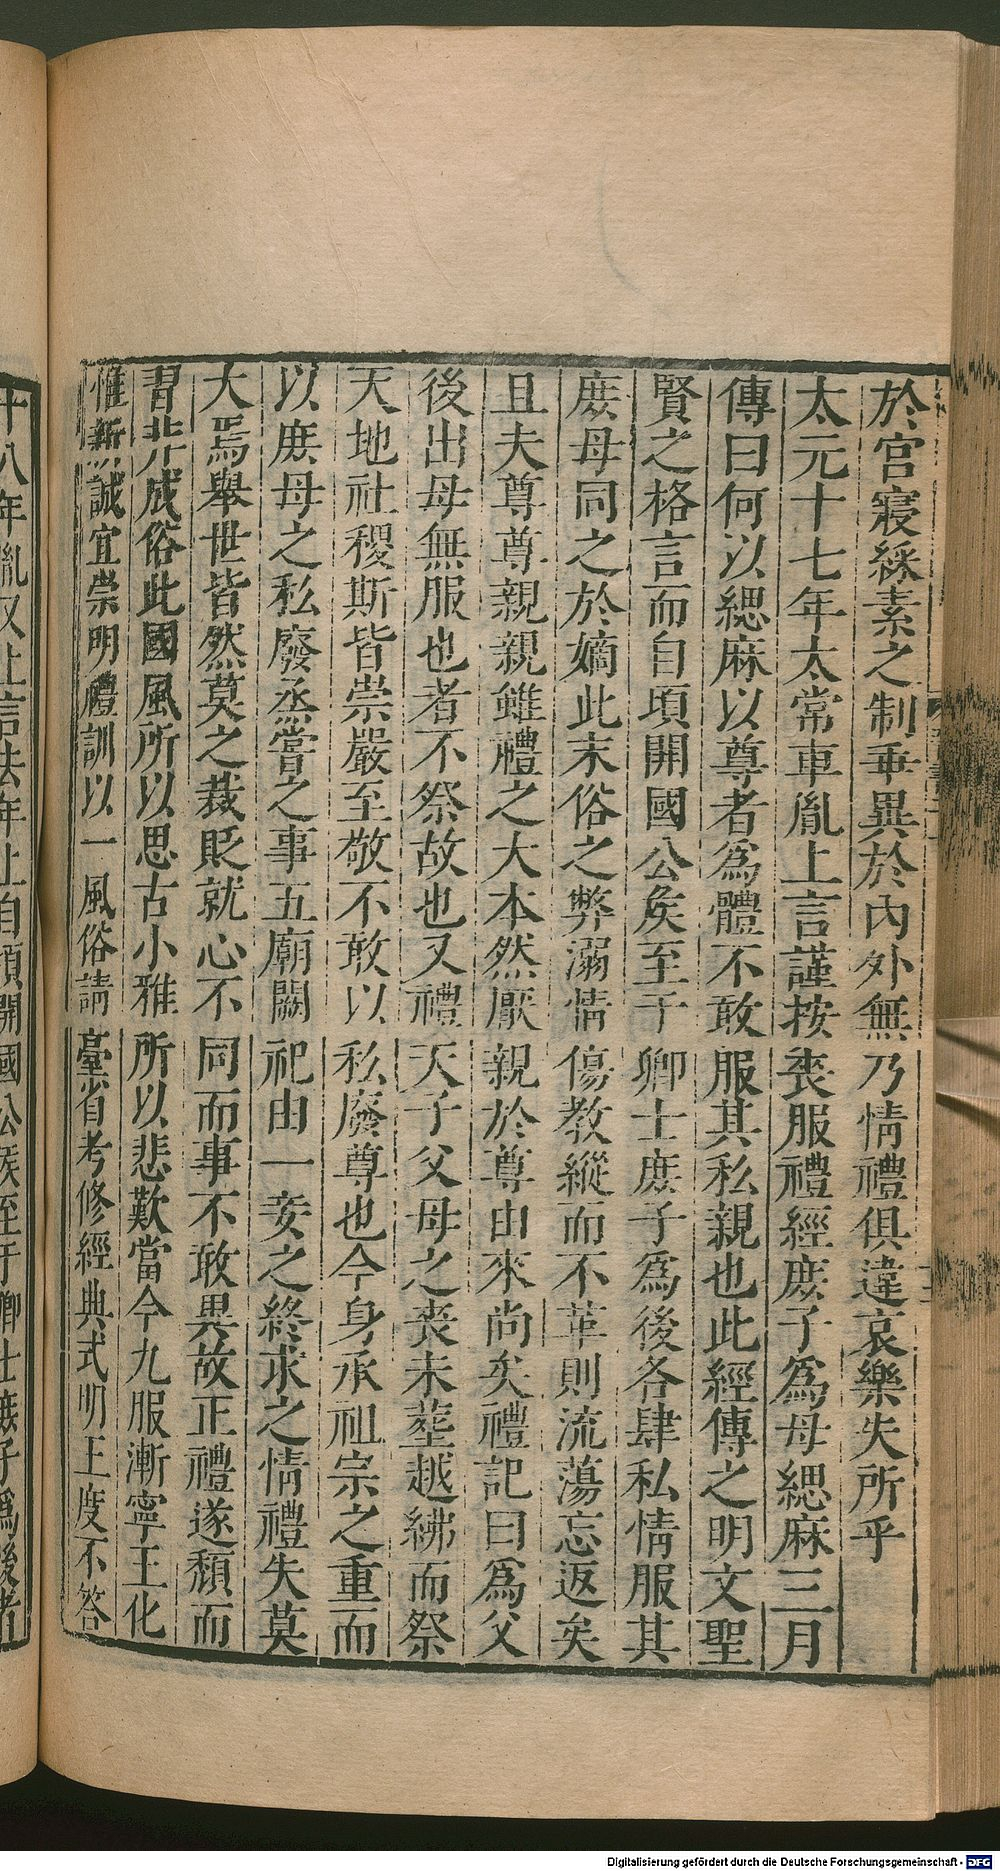 於宮寢綵素之制乖異於內外無乃情禮俱違哀樂失所乎
太元十七年太常車胤上言謹按喪服禮經庶子爲母緦麻三月
傳曰何以緦麻以尊者爲體不敢服其私親也此經傳之明文聖
賢之格言而自頃開國公矦至于卿士庶子爲後各肆私情服其
庶母同之於嫡此末俗之弊溺情傷教縱而不革則流蕩忘返矣
且夫尊尊親親雖禮之大本然厭親於尊由來尚矣禮記曰爲父
後出母無服也者不祭故也又禮天子父母之喪未塟越紼而祭
天地社稷斯皆崇嚴至敬不敢以私廢尊也今身承祖宗之重而
以庶母之私廢烝嘗之事五廟闕祀由一妾之終求之情禮失莫
大焉舉世皆然莫之裁貶就心不同而事不敢異故正禮遂頹而
習非成俗此國風所以思古小雅所以悲歎當今九服漸寧王化
惟新誠宜崇明禮訓以一風俗請臺省考修經典式明王度不答
十八年胤又上言去年上自頃開國公矦至于卿士庶子爲後者
Digitalisierung gefördert durch die Deutsche Forschungsgemeinschaft - DFG